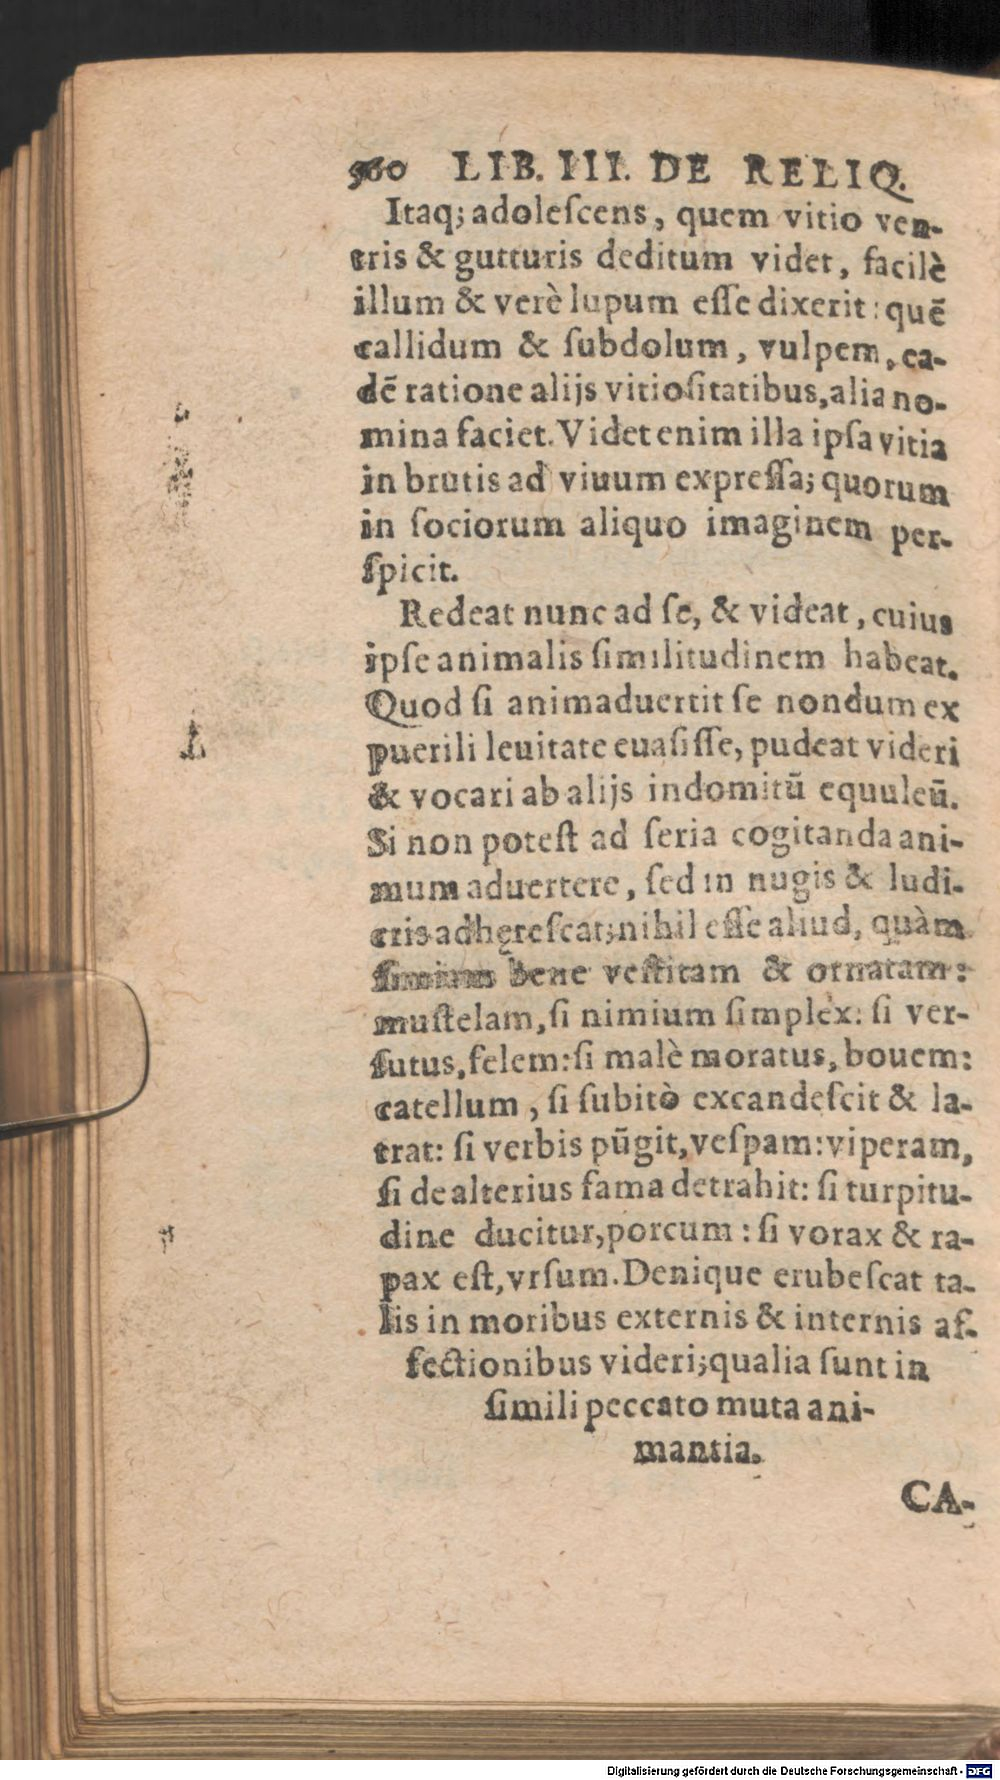 560 LIB. III. DE RELIQ.
Itaq; adoleſcens, quem vitio ven-
tris & gutturis deditum videt, facilè
illum & verè lupum eſſe dixerit: quē
callidum & ſubdolum, vulpem, ea-
dē ratione alijs vitioſitatibus, alia no-
mina faciet. Videt enim illa ipſa vitia
in brutis ad viuum expreſſa; quorum
in ſociorum aliquo imaginem per-
ſpicit.
Redeat nunc ad ſe, & videat, cuius
ipſe animalis ſimilitudinem habeat.
Quod ſi animaduertit ſe nondum ex
puerili leuitate euaſiſſe, pudeat videri
& vocari ab alijs indomitū equuleū.
Si non poteſt ad ſeria cogitanda ani-
mum aduertere, ſed in nugis & ludi-
cris adhęreſcat; nihil eſſe aliud, quàm
ſimium bene veſtitam & ornatam:
muſtelam, ſi nimium ſimplex: ſi ver-
ſutus, felem: ſi malè moratus, bouem:
catellum, ſi ſubitò excandeſcit & la-
trat: ſi verbis pūgit, veſpam: viperam,
ſi de alterius fama detrahit: ſi turpitu-
dine ducitur, porcum: ſi vorax & ra-
pax eſt, vrſum. Denique erubeſcat ta-
lis in moribus externis & internis af-
fectionibus videri; qualia ſunt in
ſimili peccato muta ani-
mantia.
CA-
Digitalisierung gefördert durch die Deutsche Forschungsgemeinschaft - DFG